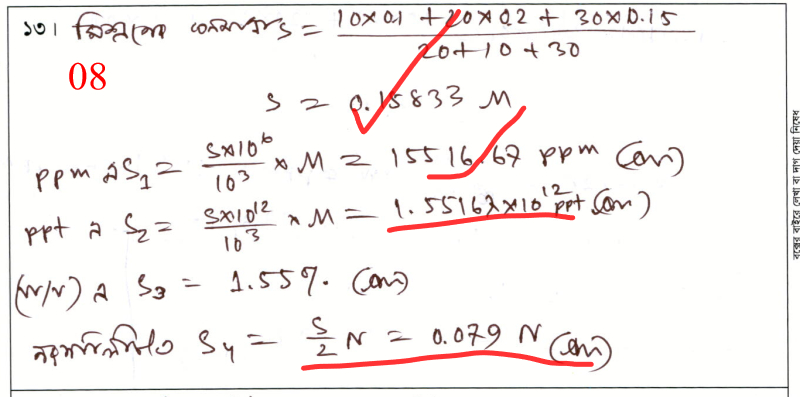 ১৩। মিশ্রণের ঘনমাত্রা S = (10×0.1 + 20×0.2 + 30×0.15) / (20+10+30)
08
S = 0.15833 M
ppm এ S₁ = (S×10⁶ / 10³) × M = 15516.67 ppm (Ans)
ppt এ S₂ = (S×10¹² / 10³) × M = 1.55167×10¹² ppt (Ans)
(w/v) এ S₃ = 1.55%. (Ans)
S₄ = (S/2) N = 0.079 N (Ans)
বক্সের বাইরে লেখা বা দাগ দেয়া নিষেধ